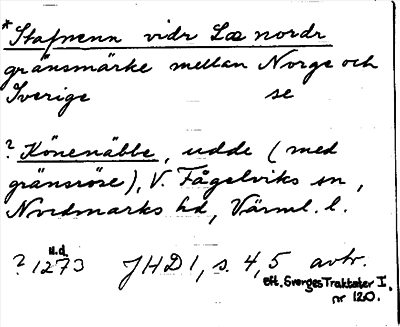 *Stafnenn vidr Læ nordr
gränsmärke mellan Norge och
Sverige se
? Könenäbbe, udde (med
gränsröse), V. Fågelviks sn,
Nordmarks hd, Värml. l.
u.d.
? 1273 JHD 1, s. 4, 5 avtr.
eft. Sverges Traktater I,
nr 120.